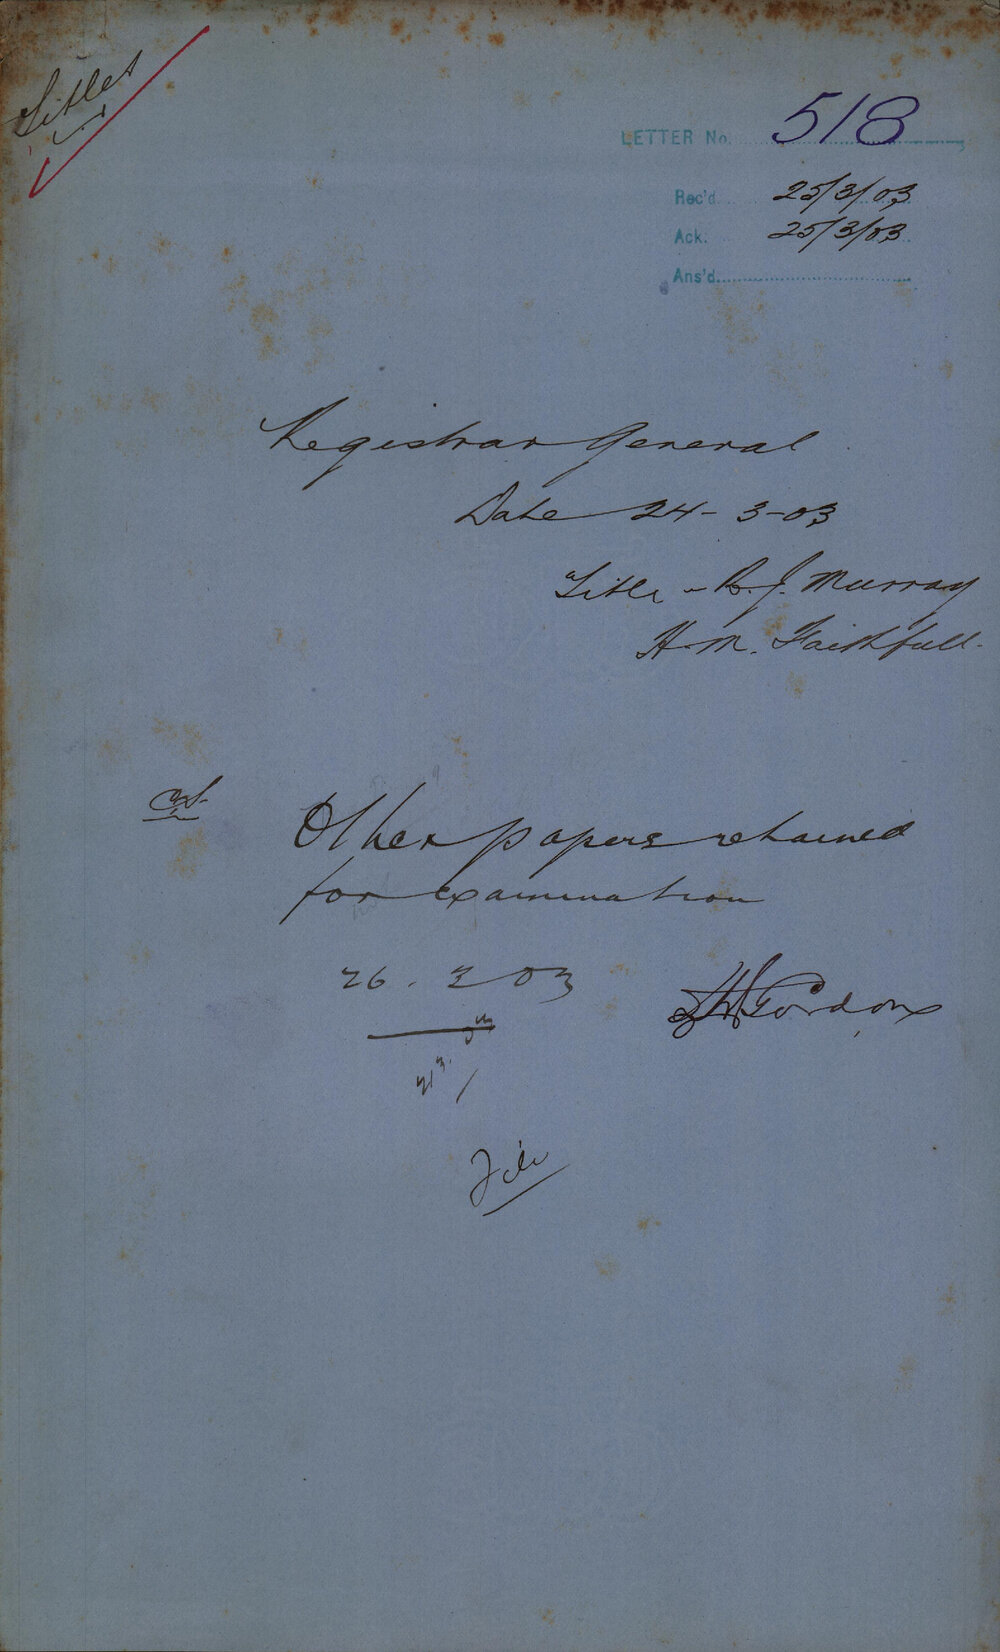 Titles
LETTER No. 518
Rec'd. 25/3/03
Ack. 25/3/03
Ans'd.
Registrar General
Date 24-3-03
Title - R. J. Murray
H. M. Faithfull.
Other papers retained
for examination
26. 3 03
Gordon
File